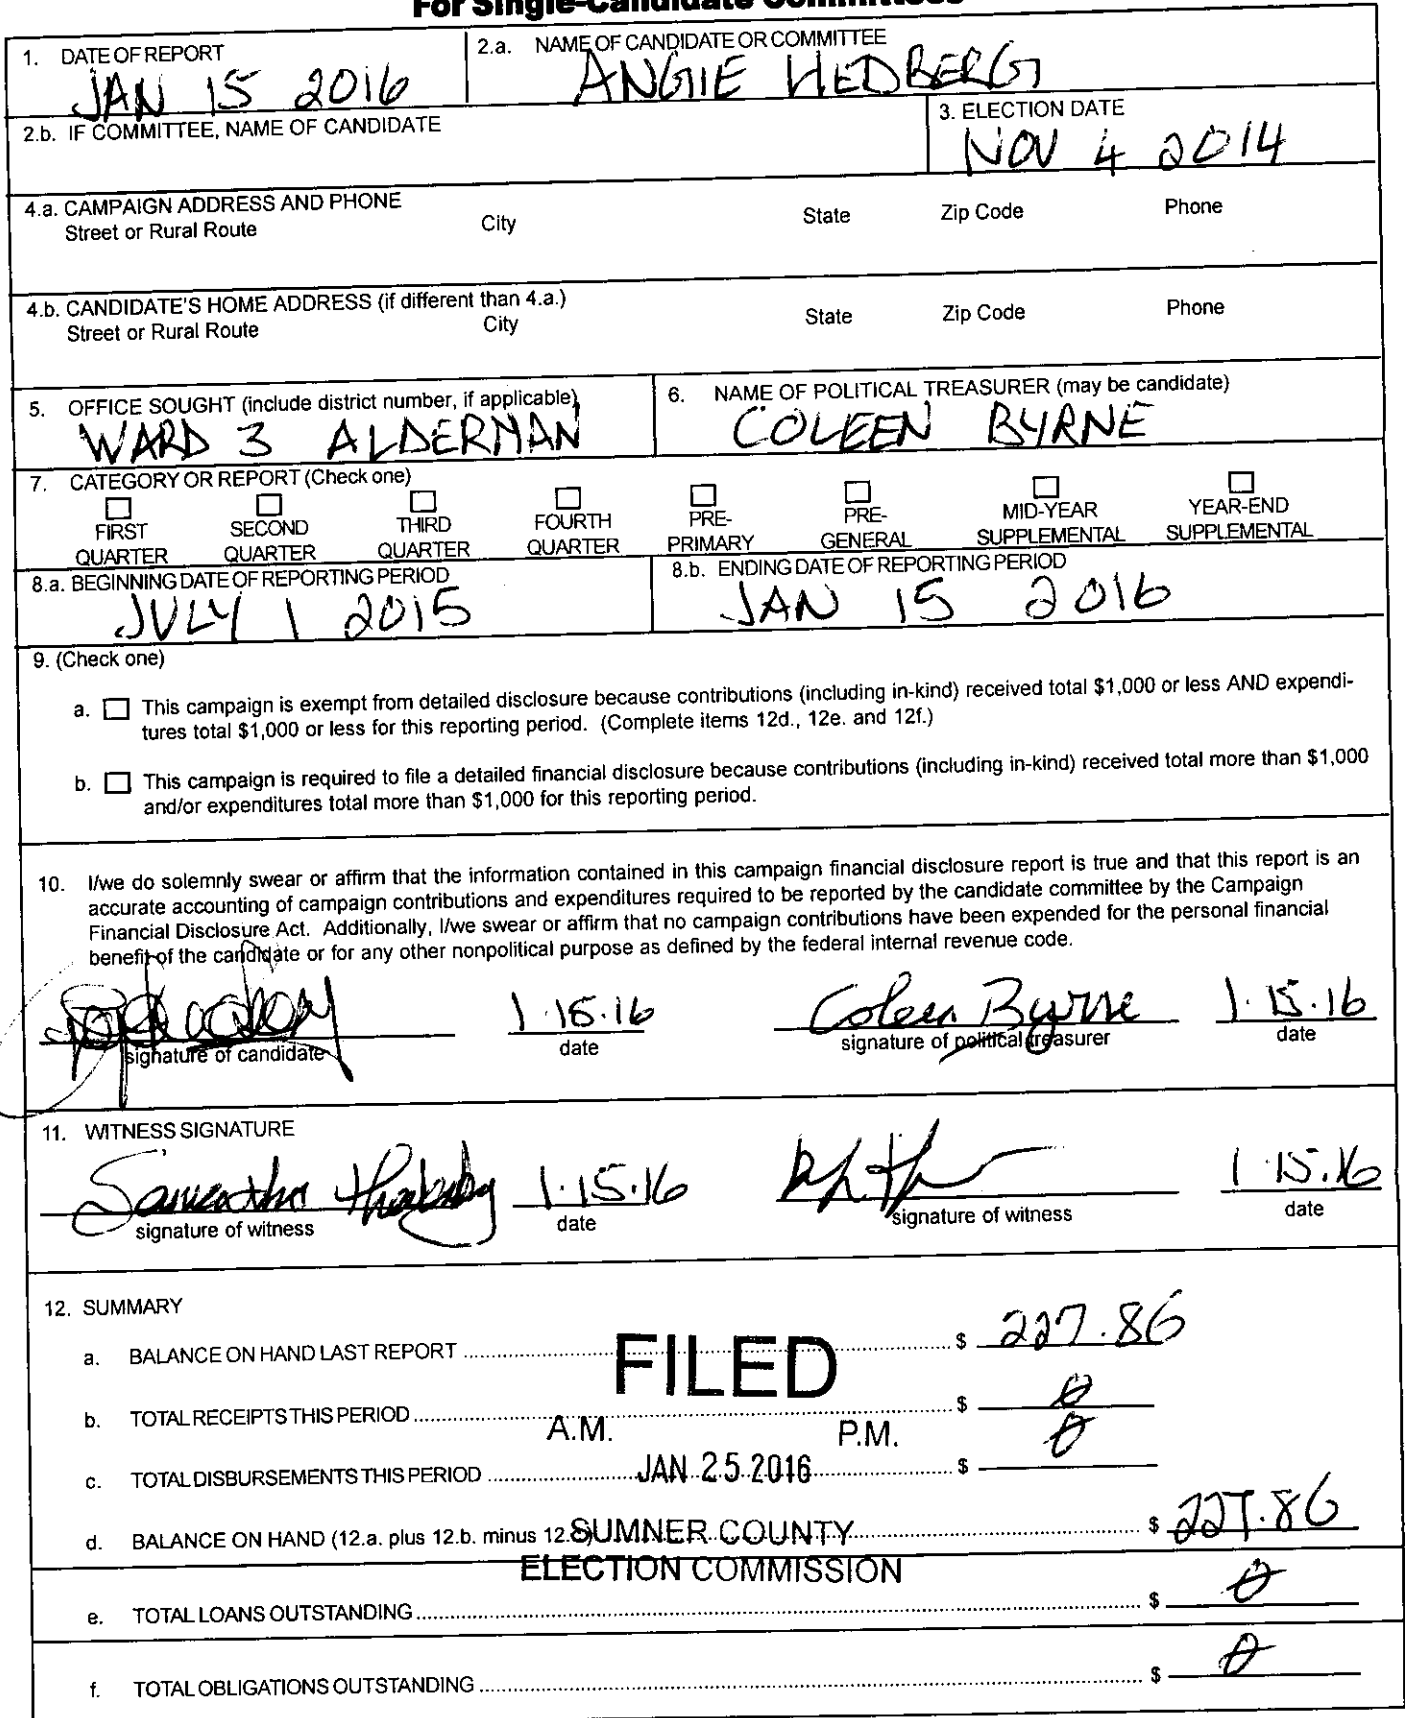 For Single-Candidate Committees
1. DATE OF REPORT
JAN 15 2016
2.a. NAME OF CANDIDATE OR COMMITTEE
ANGIE HEDBERG
2.b. IF COMMITTEE, NAME OF CANDIDATE
3. ELECTION DATE
NOV 4 2014
4.a. CAMPAIGN ADDRESS AND PHONE
Street or Rural Route City State Zip Code Phone
4.b. CANDIDATE'S HOME ADDRESS (if different than 4.a.)
Street or Rural Route City State Zip Code Phone
5. OFFICE SOUGHT (include district number, if applicable)
WARD 3 ALDERMAN
6. NAME OF POLITICAL TREASURER (may be candidate)
COLEEN BYRNE
7. CATEGORY OR REPORT (Check one)
FIRST QUARTER
SECOND QUARTER
THIRD QUARTER
FOURTH QUARTER
PRE-PRIMARY
PRE-GENERAL
MID-YEAR SUPPLEMENTAL
YEAR-END SUPPLEMENTAL
8.a. BEGINNING DATE OF REPORTING PERIOD
JULY 1 2015
8.b. ENDING DATE OF REPORTING PERIOD
JAN 15 2016
9. (Check one)
a. This campaign is exempt from detailed disclosure because contributions (including in-kind) received total $1,000 or less AND expendi-
tures total $1,000 or less for this reporting period. (Complete items 12d., 12e. and 12f.)
b. This campaign is required to file a detailed financial disclosure because contributions (including in-kind) received total more than $1,000
and/or expenditures total more than $1,000 for this reporting period.
10. I/we do solemnly swear or affirm that the information contained in this campaign financial disclosure report is true and that this report is an
accurate accounting of campaign contributions and expenditures required to be reported by the candidate committee by the Campaign
Financial Disclosure Act. Additionally, I/we swear or affirm that no campaign contributions have been expended for the personal financial
benefit of the candidate or for any other nonpolitical purpose as defined by the federal internal revenue code.
1.15.16 Coleen Byrne 1.15.16
signature of candidate date signature of political treasurer date
11. WITNESS SIGNATURE
Samantha 1.15.16 1.15.16
signature of witness date signature of witness date
12. SUMMARY
a. BALANCE ON HAND LAST REPORT $ 227.86
FILED
b. TOTAL RECEIPTS THIS PERIOD $ 0
A.M. P.M.
c. TOTAL DISBURSEMENTS THIS PERIOD $ 0
JAN 25 2016
d. BALANCE ON HAND (12.a. plus 12.b. minus 12.c) $ 227.86
SUMNER COUNTY
ELECTION COMMISSION
e. TOTAL LOANS OUTSTANDING $ 0
f. TOTAL OBLIGATIONS OUTSTANDING $ 0